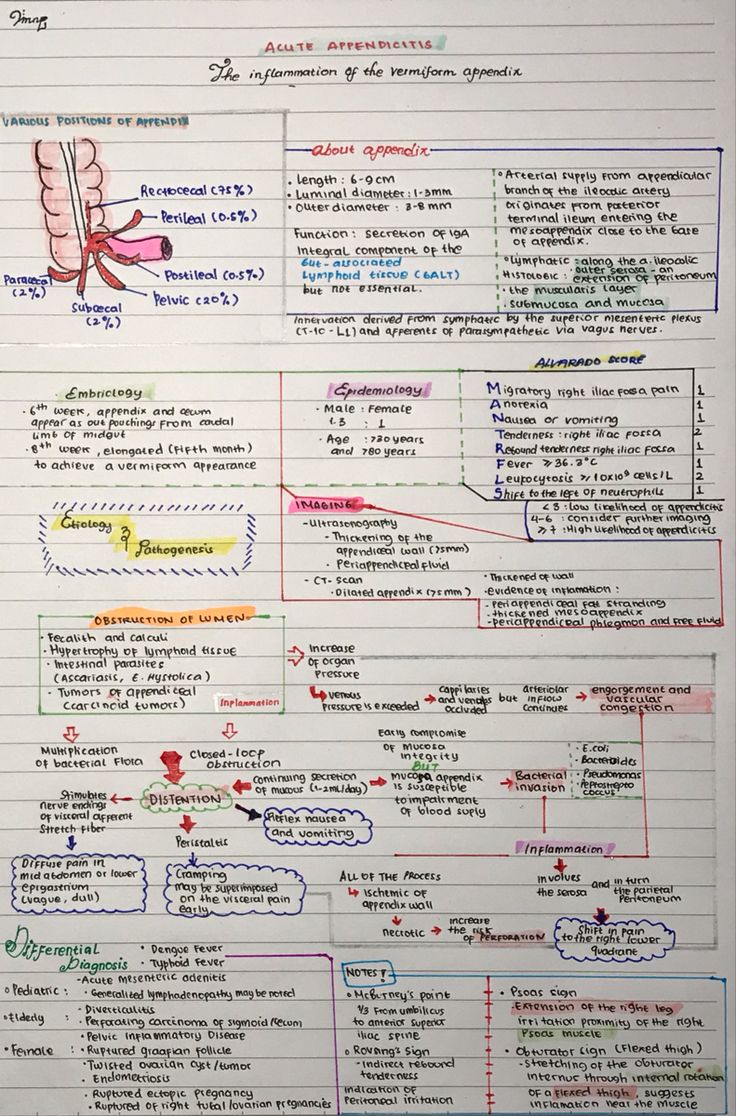 ACUTE APPENDICITIS
The inflammation of the vermiform appendix
VARIOUS POSITIONS OF APPENDIX
Retrocecal (75%)
Perileal (0.5%)
Postileal (0.5%)
Pelvic (20%)
Paracecal
(2%)
Subcecal
(2%)
About appendix
• Length : 6-9 cm
• Luminal diameter : 1-3mm
• Outer diameter : 3-8 mm
Function : secretion of IgA
Integral component of the
Gut-associated
Lymphoid tissue (GALT)
but not essential.
• Arterial supply from appendicular
branch of the ileocolic artery
originates from posterior
terminal ileum entering the
mesoappendix close to the base
of appendix.
• Lymphatic : along the a. ileocolic
HISTOLOGIC : • outer serosa - an
extension of peritoneum
• the muscularis layer
• submucosa and mucosa
Innervation derived from symphatic by the superior mesenteric plexus
(T-10 - L1) and afferents of parasympathetic via vagus nerves.
Embriology
• 6th week, appendix and cecum
appear as out pouchings from caudal
limb of midgut
• 8th week, elongated (fifth month)
to achieve a vermiform appearance
Epidemiology
• Male : Female
1.3 : 1
• Age : >30 years
and >80 years
ALVARADO SCORE
Migratory right iliac fossa pain 1
Anorexia 1
Nausea or vomiting 1
Tenderness : right iliac fossa 2
Rebound tenderness right iliac fossa 1
Fever ≥ 36.3°C 1
Leupocytosis ≥ 10x10⁹ cells/L 2
Shift to the left of neutrophils 1
< 3 : low likelihood of appendicitis
4-6 : consider further imaging
≥ 7 : High likelihood of appendicitis
Etiology
&
Pathogenesis
IMAGING
- Ultrasonography
- Thickening of the
appendiceal wall (>5mm)
• Periappendiceal fluid
- CT-scan
• Dilated appendix (>5 mm)
• Thickened of wall
• evidence of inflamation :
- periappendiceal fat stranding
- thickened mesoappendix
- periappendiceal phlegmon and free fluid
OBSTRUCTION OF LUMEN
• Fecalith and calculi
• Hypertrophy of lymphoid tissue
• Intestinal parasites
(Ascariasis, E. Hystolica)
• Tumors of appendiceal
(carcinoid tumors)
Inflammation
Increase
of organ
pressure
venous
Pressure is exceeded
cappilaries
and venules
occluded
but
arteriolar
inflow
continues
engorgement and
vascular
congestion
Multiplication
of bacterial flora
Closed-loop
obstruction
Early compromise
of mucosa
integrity
BUT
mucosa appendix
is susceptible
to impairment
of blood suply
Continuing secretion
of mucous (1-2mL/day)
Bacterial
invasion
• E.coli
• Bacteroides
• Pseudomonas
• Peptostrepto
coccus
Stimulates
nerve endings
of visceral afferent
stretch fiber
DISTENTION
Reflex nausea
and vomiting
Peristaltis
Inflammation
Diffuse pain in
mid abdomen or lower
epigastrium
(vague, dull)
Cramping
may be superimposed
on the visceral pain
early
ALL OF THE PROCESS
Ischemic of
appendix wall
necrotic
increase
the risk
of PERFORATION
involves
the serosa
and in turn
the parietal
Peritoneum
Shift in pain
to the right lower
quadrant
Differential
Diagnosis
• Dengue Fever
• Typhoid Fever
• Pediatric :
- Acute mesenteric adenitis
• Generalized lymphadenopathy may be noted
• Elderly :
• Diverticulitis
• Perforating carcinoma of sigmoid/recum
• Pelvic Inflammatory Disease
• Female :
• Ruptured graafian follicle
• Twisted ovarian cyst/tumor
• Endometriosis
• Ruptured ectopic pregnancy
• Ruptured of right tubal/ovarian pregnancies
NOTES!
• McBurney's point
1/3 from umbilicus
to anterior superior
iliac spine
• Rovsing's Sign
- Indirect rebound
tenderness
indication of
Peritoneal irritation
• Psoas sign
- Extension of the right leg
irritation proximity of the right
Psoas muscle
• Obturator sign (Flexed thigh)
- Stretching of the obturator
internus through internal rotation
of a flexed thigh, suggests
inflamation near the muscle